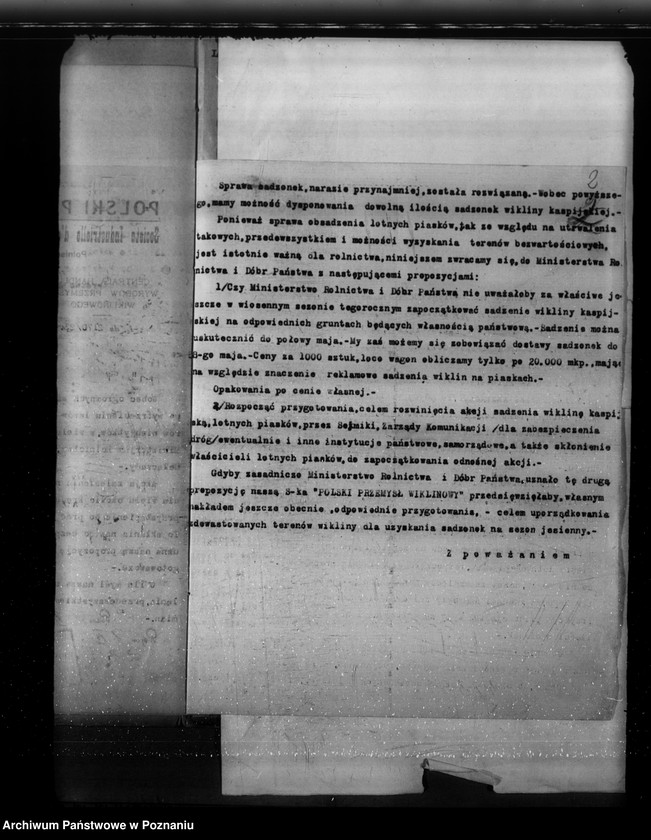 2
Sprawa sadzonek,narazie przynajmniej,została rozwiązaną.-Wobec powyższe-
go,mamy możność dysponowania dowolną ilością sadzonek wikliny kaspijskiej.-
Ponieważ sprawa obsadzenia lotnych piasków,tak ze względu na utrwalenia
takowych,przedewszystkiem i możności wyzyskania terenów bezwartościowych,
jest istotnie ważną dla rolnictwa,niniejszem zwracamy się,do Ministerstwa Ro
nictwa i Dóbr Państwa z następującemi propozycjami:
1/Czy Ministerstwo Rolnictwa i Dóbr Państwa nie uważałoby za właściwe je-
szcze w wiosennym sezonie tegorocznym zapoczątkować sadzenie wikliny kaspij-
skiej na odpowiednich gruntach będących własnością państwową.-Sadzenie można
uskutecznić do połowy maja.-My zaś możemy się zobowiązać dostawy sadzonek do
8-go maja.-Ceny za 1000 sztuk,loco wagon obliczamy tylko po 20.000 mkp.,mając
na względzie znaczenie reklamowe sadzenia wiklin na piaskach.-
Opakowania po cenie własnej.-
2/Rozpocząć przygotowania,celem rozwinięcia akcji sadzenia wiklinę kaspij
ską,lotnych piasków,przez Sejmiki,Zarządy Komunikacji /dla zabezpieczenia
dróg/ewentualnie i inne instytucje państwowe,samorządowe,a także skłonienie
właścicieli lotnych piasków,do zapoczątkowania odnośnej akcji.-
Gdyby zasadniczo Ministerstwo Rolnictwa i Dóbr Państwa,uznało tę drugą
propozycję naszą S-ka "POLSKI PRZEMYSŁ WIKLINOWY" przedsięwzięłaby,własnym
nakładem jeszcze obecnie ,odpowiednie przygotowania, - celem uporządkowania
zdewastowanych terenów wikliny dla uzyskania sadzonek na sezon jesienny.-
Z poważaniem
Archiwum Państwowe w Poznaniu